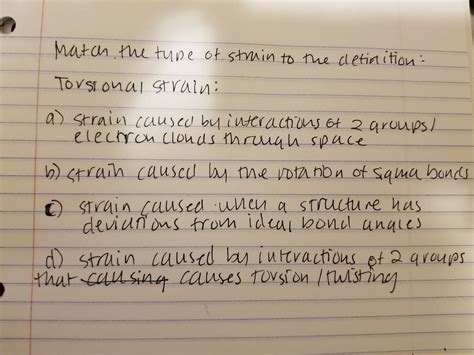 Match the type of strain to the definition:
Torsional strain:
a) strain caused by interactions of 2 groups/
electron clouds through space
b) strain caused by the rotation of sigma bonds
c) strain caused when a structure has
deviations from ideal bond angles
d) strain caused by interactions of 2 groups
that causing causes torsion/twisting